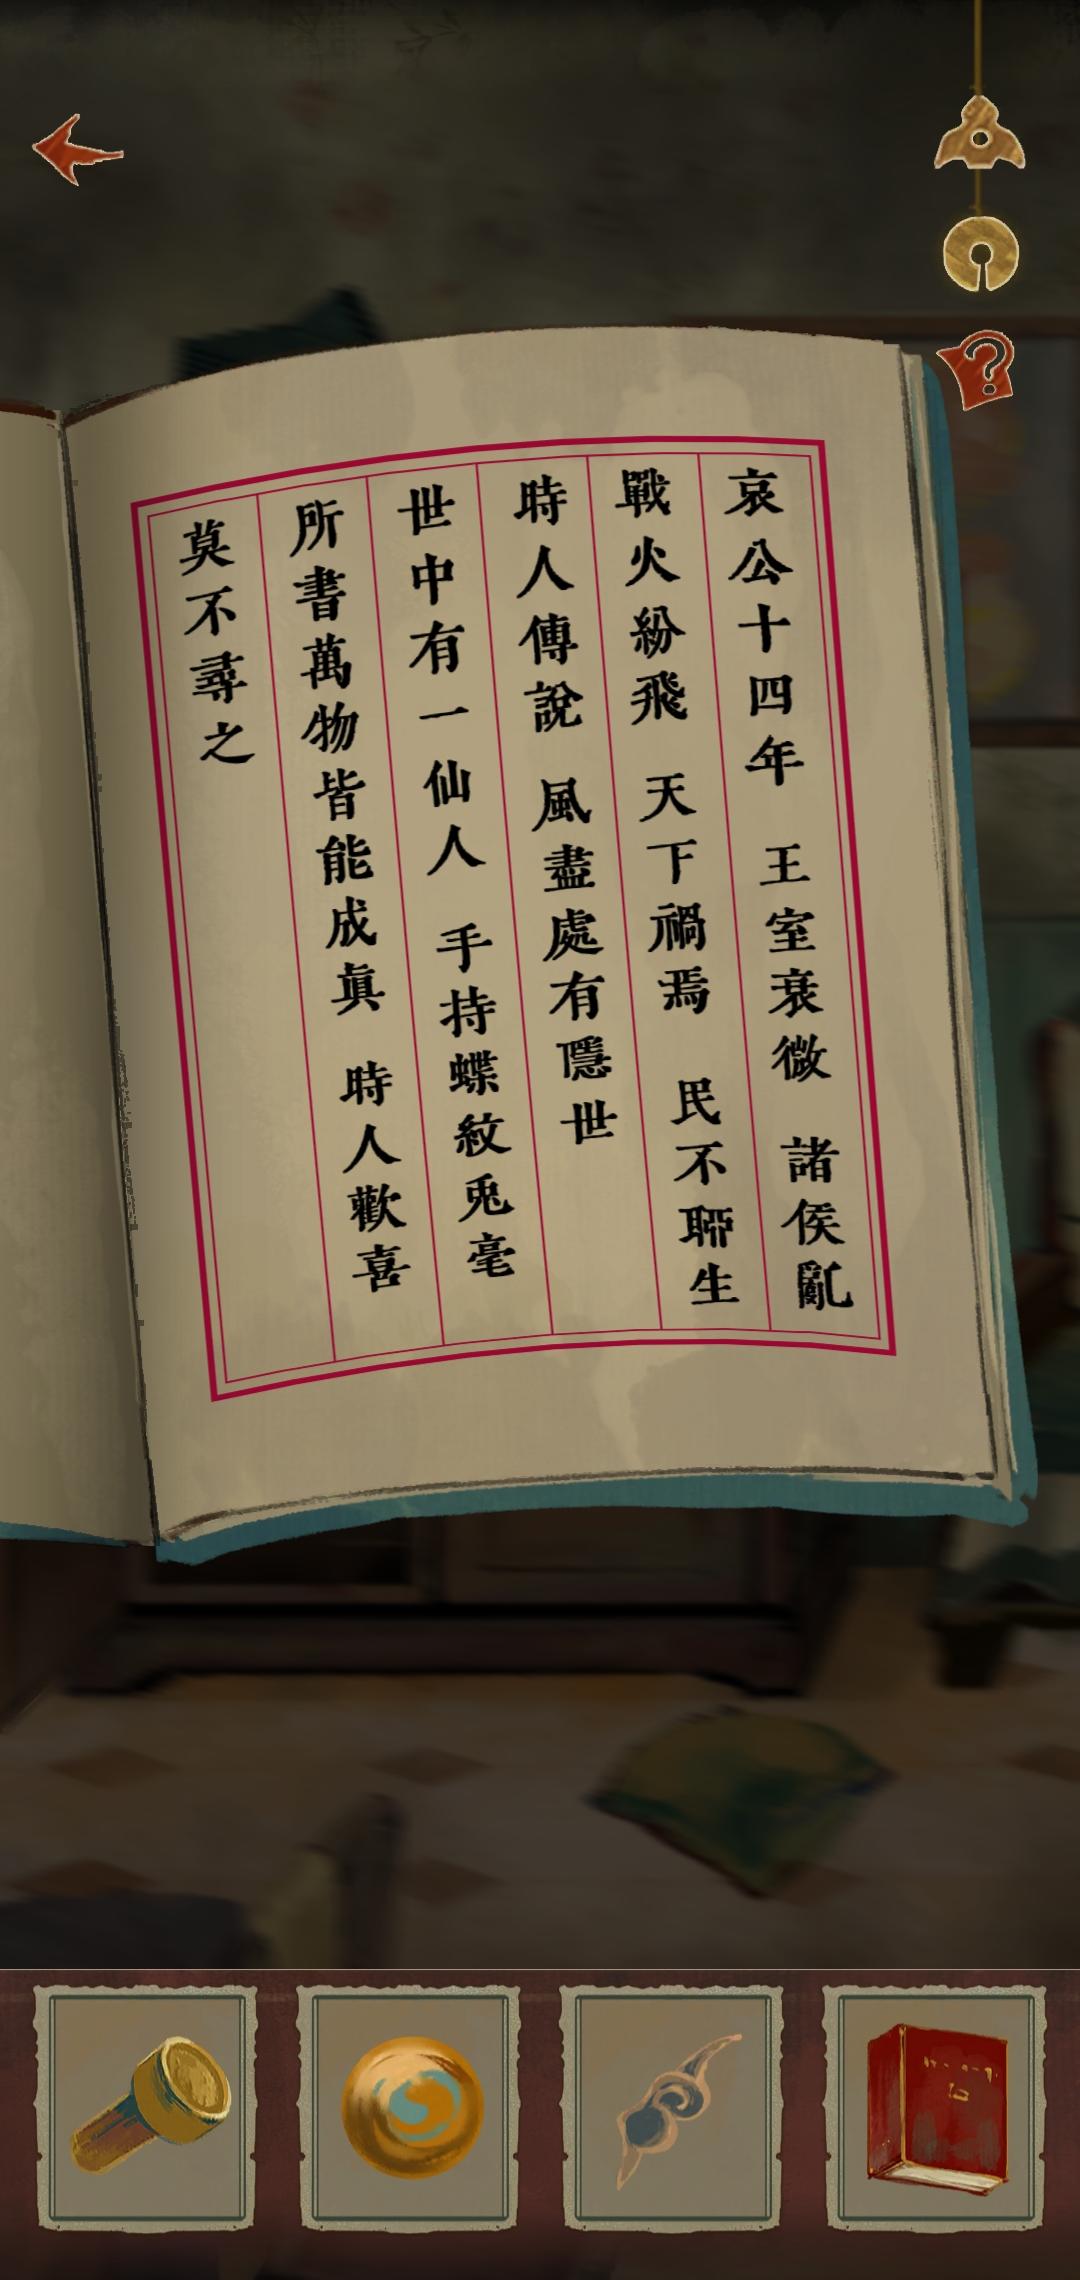 哀公十四年 王室衰微 諸侯亂
戰火紛飛 天下禍焉 民不聊生
時人傳說 風盡處有隱世
世中有一仙人 手持蝶紋兎毫
所書萬物皆能成眞 時人歡喜
莫不尋之
?